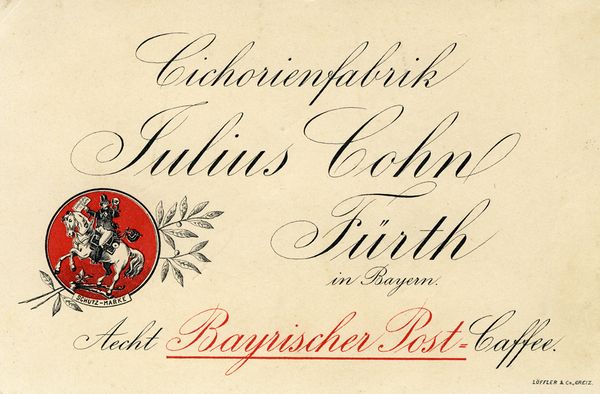 Cichorienfabrik
Julius Cohn
Fürth
in Bayern.
SCHUTZ-MARKE
Aecht Bayrischer Post=Caffee.
LÖFFLER & Co., GREIZ.